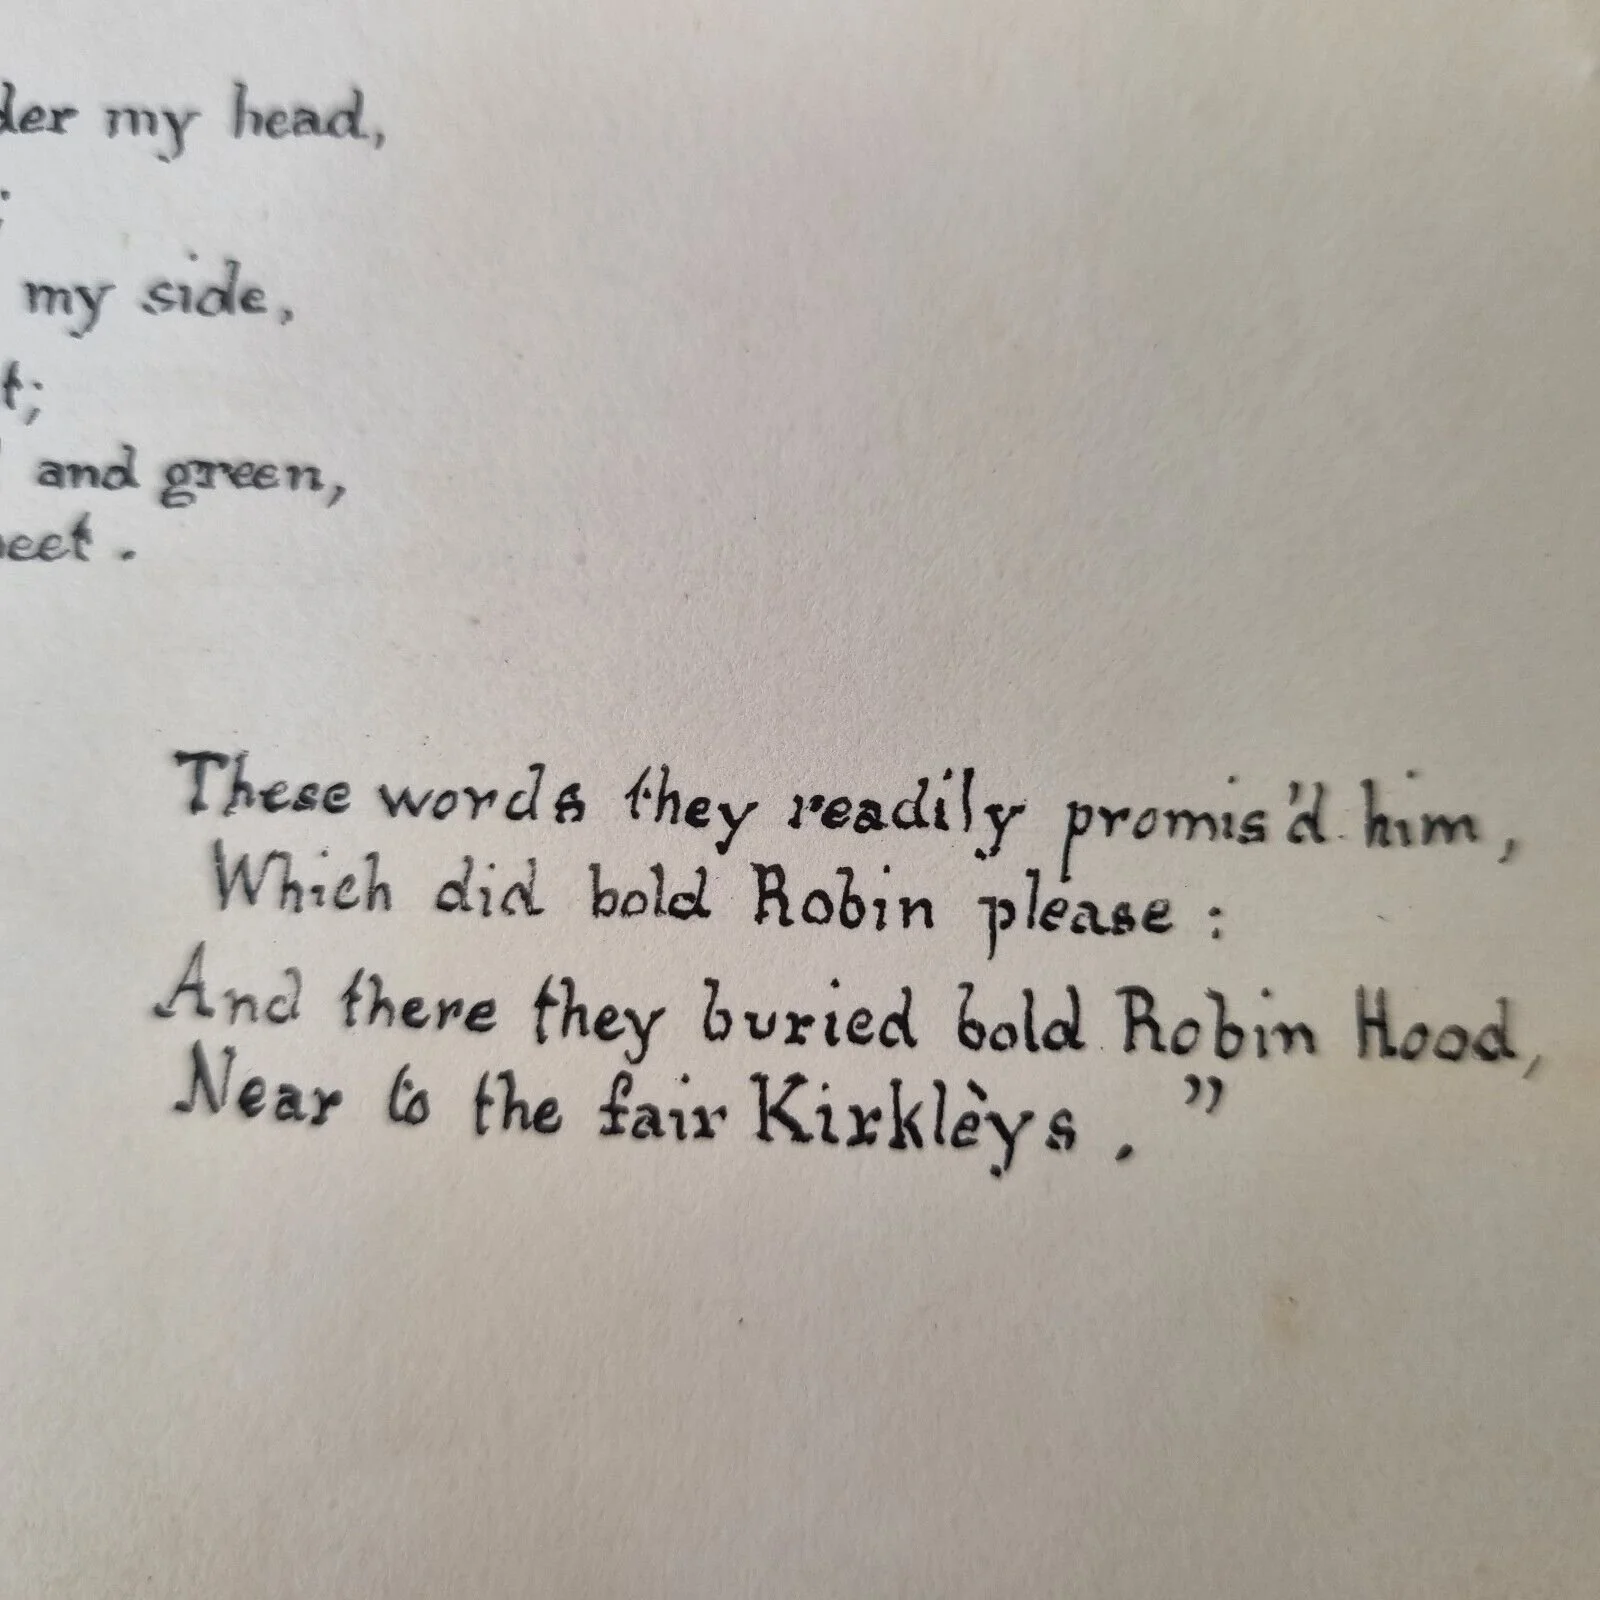 der my head,
;
my side,
t;
and green,
eet.
These words they readily promis'd him,
Which did bold Robin please:
And there they buried bold Robin Hood,
Near to the fair Kirklèys."